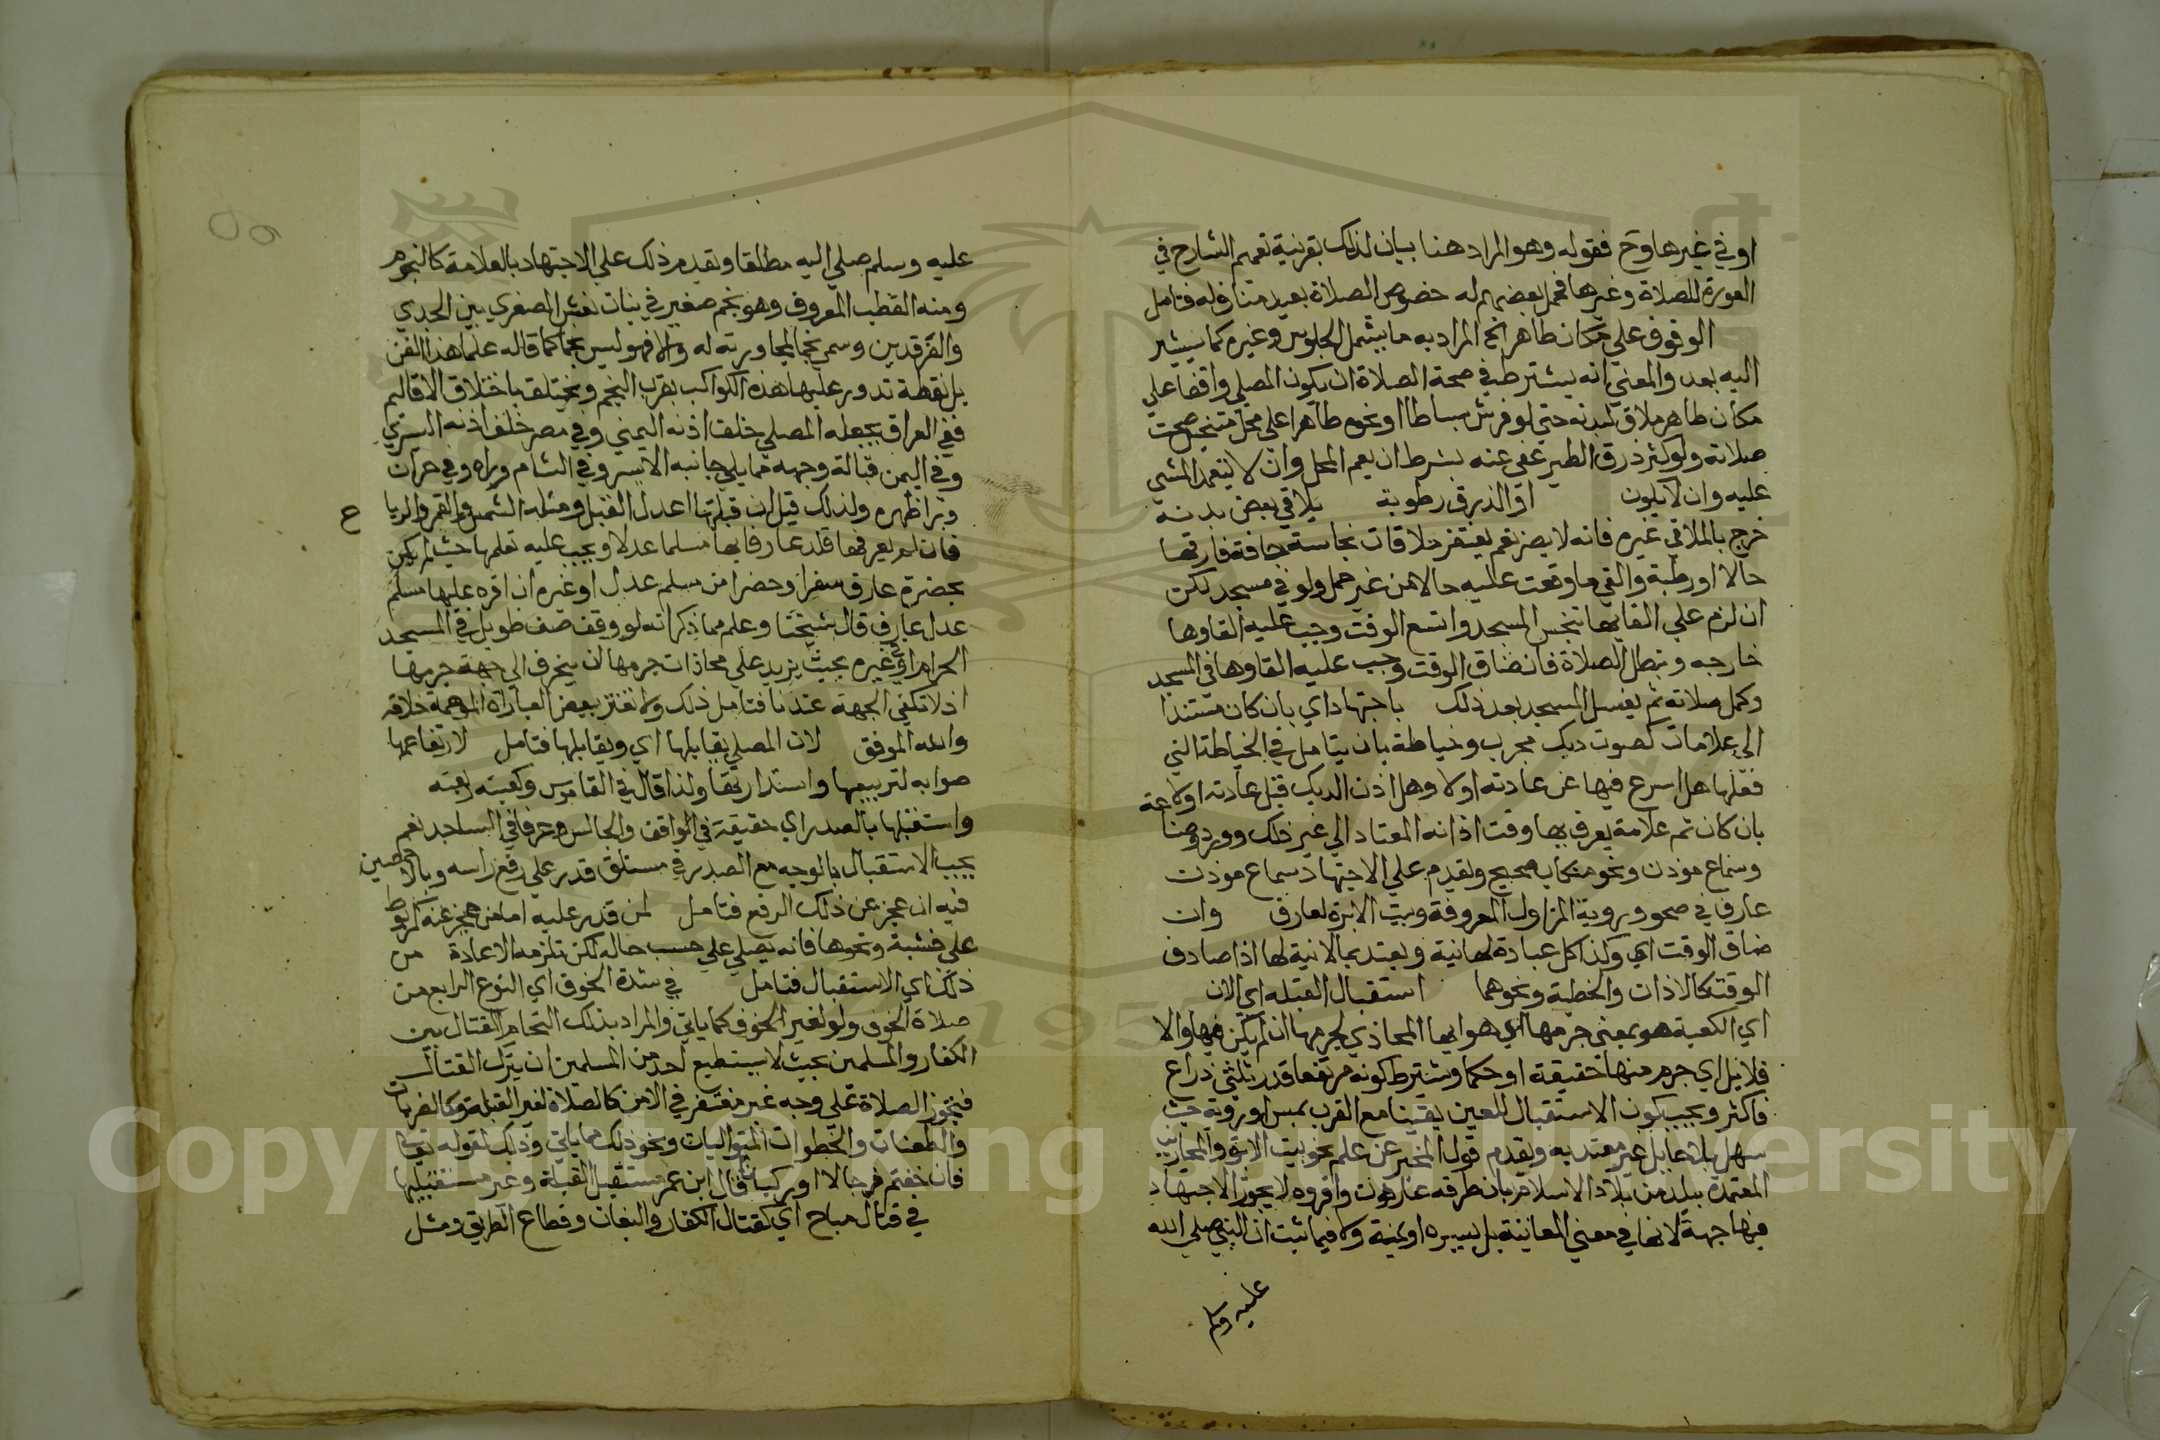 او في غيرها وح فقوله وهو المراد هنا بيان لذلك بقرينة تعميم الشارح في
العورة للصلاة وغيرها فحمل بعضهم له خصوص الصلاة بعيد متنا وله فتامل
الوقوف على مكان طاهر الخ المراد به ما يشمل الجلوس وغيره كما سيشير
اليه بعد والمعني انه يشترط في صحة الصلاة ان يكون المصلي واقفا علي
مكان طاهر ملاق لبدنه حتي لو فرش بساطا او نحوه طاهرا علي محل متنجس صحت
صلاته ولو كثر ذرق الطير عفي عنه بشرط ان يعم المحل وان لا يتعمد المشي
عليه وان لا يكون او الذرق رطوبة يلاقي بعض بدنه
خرج بالملاقي غيره فانه لا يضر نعم يغتفر ملاقات نجاسة جافة فارقها
حالا او رطبة والقي ما وقعت عليه حالا من غير حمل ولو في مسجد لكن
ان لزم علي القايها تنجس المسجد واتسع الوقت وجب عليه القاوها
خارجه وتبطل الصلاة فان ضاق الوقت وجب عليه القاوها في المسجد
وكمل صلاته ثم يغسل المسجد بعد ذلك باجتهاد اي بان كان مستندا
الي علامات كصوت ديك مجرب وخياطة بان يتامل في الخياطة التي
فعلها هل اسرع فيها عن عادته اولا وهل اذن الديك قبل عادته اولا
بان كان ثم علامة يعرف بها وقت اذانه المعتاد الي غير ذلك وورد
وسماع موذن ونحو منكاب صحيح ويقدم علي الاجتهاد سماع موذن
عارف في صحو وروية المزاول المعروفة وبيت الابرة لعارف وان
ضاق الوقت اي وكذا كل عبادة لها نية ويعتد بما لا نية لها اذا صادف
الوقت كالاذان والخطبة ونحوهما استقبال القبلة اي الان
اي الكعبة هو بمعني جرمها اي هوايها المحاذي لجرمها ان لم يكن فيها والا
فلا بل اي جرم منها حقيقة او حكما ويشترط كونه مرتفعا قدر ثلثي ذراع
فاكثر ويجب كون الاستقبال للعين يقينا مع القرب بمس او روية حيث
سهل بلا حايل غير معتد به ويقدم قول المخبر عن علم نحو بيت الابرة والمحاريب
المعتمدة ببلد من بلاد الاسلام بان طرقه عارفون واقروه لا يجوز الاجتهاد
فيها جهة لانها في معني المعاينة بل يسرة او يمنة ولا فيما ثبت ان النبي صلي الله
عليه وسلم
عليه وسلم صلي اليه مطلقا ويقدم ذلك علي الاجتهاد بالعلامة كالنجوم
ومنه القطب المعروف وهو نجم صغير في بنات نعش الصغري بين الجدي
والفرقدين وسمي نجما لمجاورته له والا فهو ليس نجما كما قاله علما هذا الفن
بل نقطة تدور عليها هذه الكواكب بقرب النجم ويختلف باختلاف الاقاليم
ففي العراق يجعله المصلي خلف اذنه اليمني وفي مصر خلف اذنه اليسري
وفي اليمن قبالة وجهه مما يلي جانبه الايسر وفي الشام وراه وفي حران
ورا ظهره ولذلك قيل ان قبلتها اعدل القبل ومثله الشمس والقمر والريا ح
فان لم يعرفها قلد عارفا بها مسلما عدلا ويجب عليه تعلمها حيث لم يكن
بحضرة عارف سفرا وحضرا من مسلم عدل او غيره ان اقره عليها مسلم
عدل عارف قال شيخنا وعلم مما ذكر انه لو وقف صف طويل في المسجد
الحرام او غيره بحيث يزيد علي محاذات جرمها ان ينحرف الي جهة جرمها
اذ لا تكفي الجهة عندنا فتامل ذلك ولا تغتر ببعض العبارات الموهمة خلافه
والله الموفق لان المصلي يقابلها اي ويقابلها فتامل لارتفاعها
صوابه لتربيعها واستدارتها ولذا قال في القاموس وكعبته ربعته
واستقبلها بالصدر اي حقيقة في الواقف والجالس وحرفا في الساجد نعم
يجب الاستقبال بالوجه مع الصدر في مستلق قدر علي رفع راسه وبالاخمصين
فيه ان عجز عن ذلك الرفع فتامل لمن قدر عليه اما من عجز عنه كمربوط
علي خشبة ونحوها فانه يصلي علي حسب حاله لكن تلزمه الاعادة من
ذلك اي الاستقبال فتامل في شدة الخوف اي النوع الرابع من
صلاة الخوف ولو لغير الخوف كما ياتي والمراد بذلك التحام القتال بين
الكفار والمسلمين بحيث لا يستطيع احد من المسلمين ان يترك القتال
فتجوز الصلاة علي وجه غير مغتفر في الامن كالصلاة لغير القبلة وكالضربات
والطعنات والخطوات المتواليات ونحو ذلك مما ياتي وذلك لقوله تعالي
فان خفتم فرجالا او ركبانا قال ابن عمر مستقبل القبلة وغير مستقبلها
في قتال مباح اي كقتال الكفار والبغات وقطاع الطريق ومثل